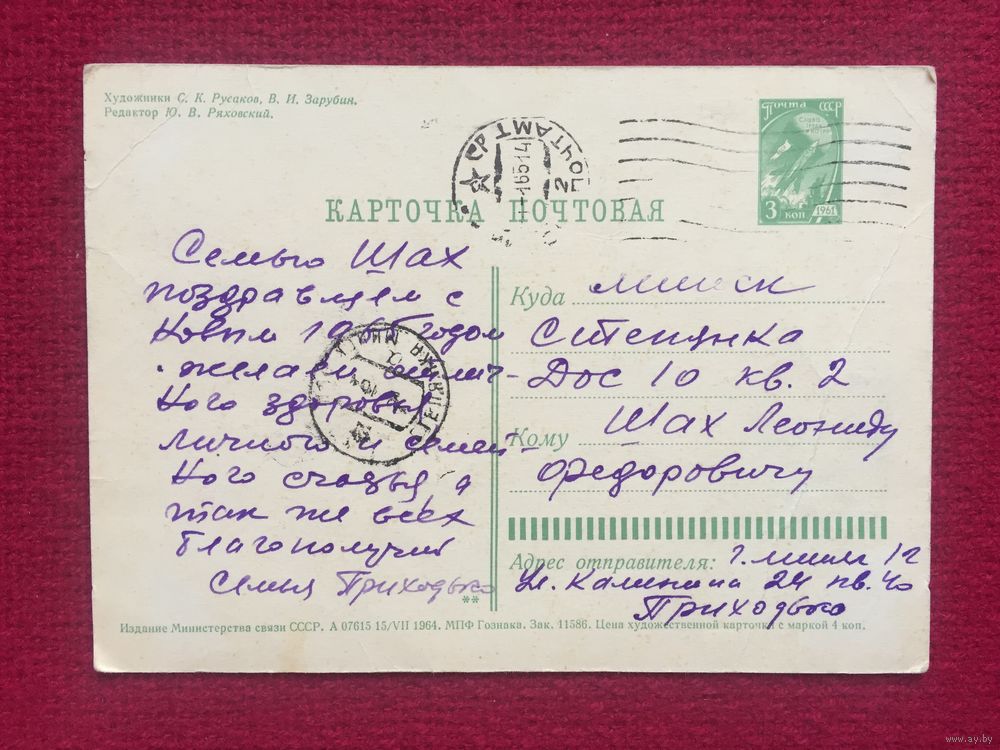 Художники С. К. Русаков, В. И. Зарубин.
Редактор Ю. В. Ряховский.
Почта СССР
3 коп 1961
ПОЧТАМТ
КАРТОЧКА ПОЧТОВАЯ
Семью Шах
поздравляем с
Новым 1965 годом
желаем
ного здоровья
личного и семей-
ного счастья, а
так же всех
благополучий
Семья Приходько
Куда Минск
Степянка
Дос 10 кв. 2
Кому Шах Леониду
Федоровичу
Адрес отправителя: г. Минск 12
ул. Калинина 24 кв. 40
Приходько
**
Издание Министерства связи СССР. А 07615 15/VII 1964. МПФ Гознака. Зак. 11586. Цена художественной карточки с маркой 4 коп.
www.ay.by